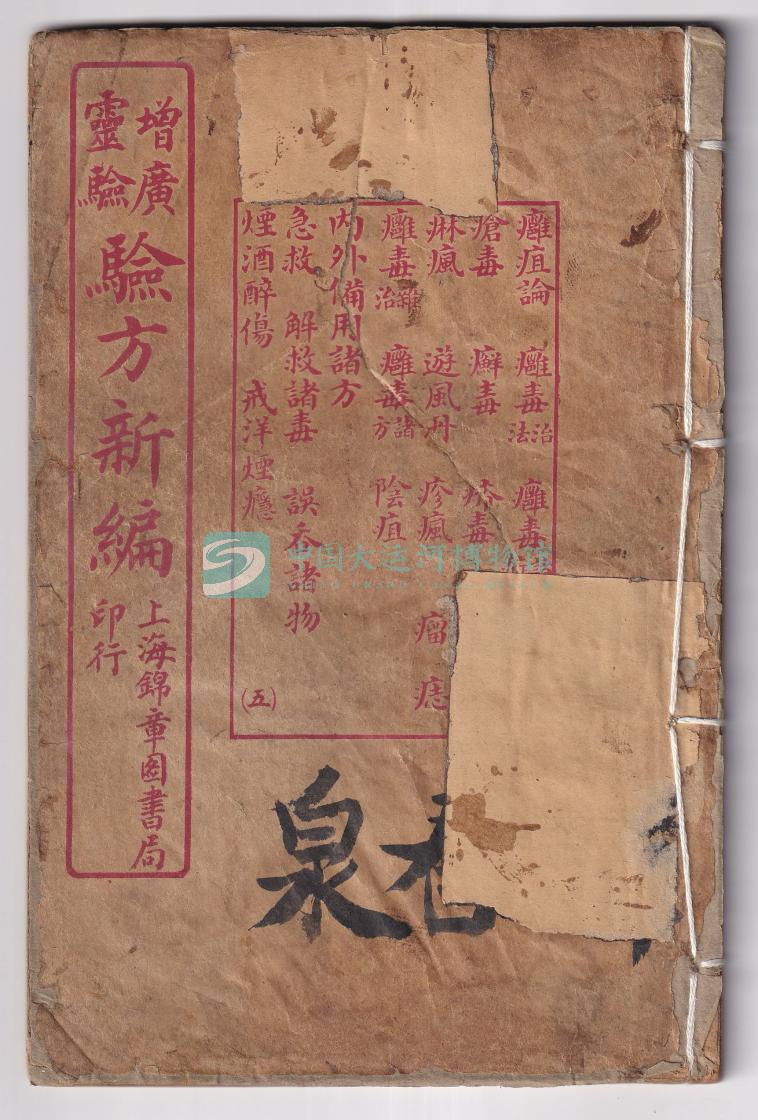 增廣
靈驗
驗方新編
上海錦章圖書局
印行
癰疽論 癰毒治法 癰毒
瘡毒 癬毒 毒
痳瘋 遊風丹 疹瘋 瘤 痣
癰毒雜治 癰毒諸方 陰疽
內外備用諸方
急救 解救諸毒 誤吞諸物
煙酒醉傷 戒洋煙癮
(五)
泉
中国大运河博物馆